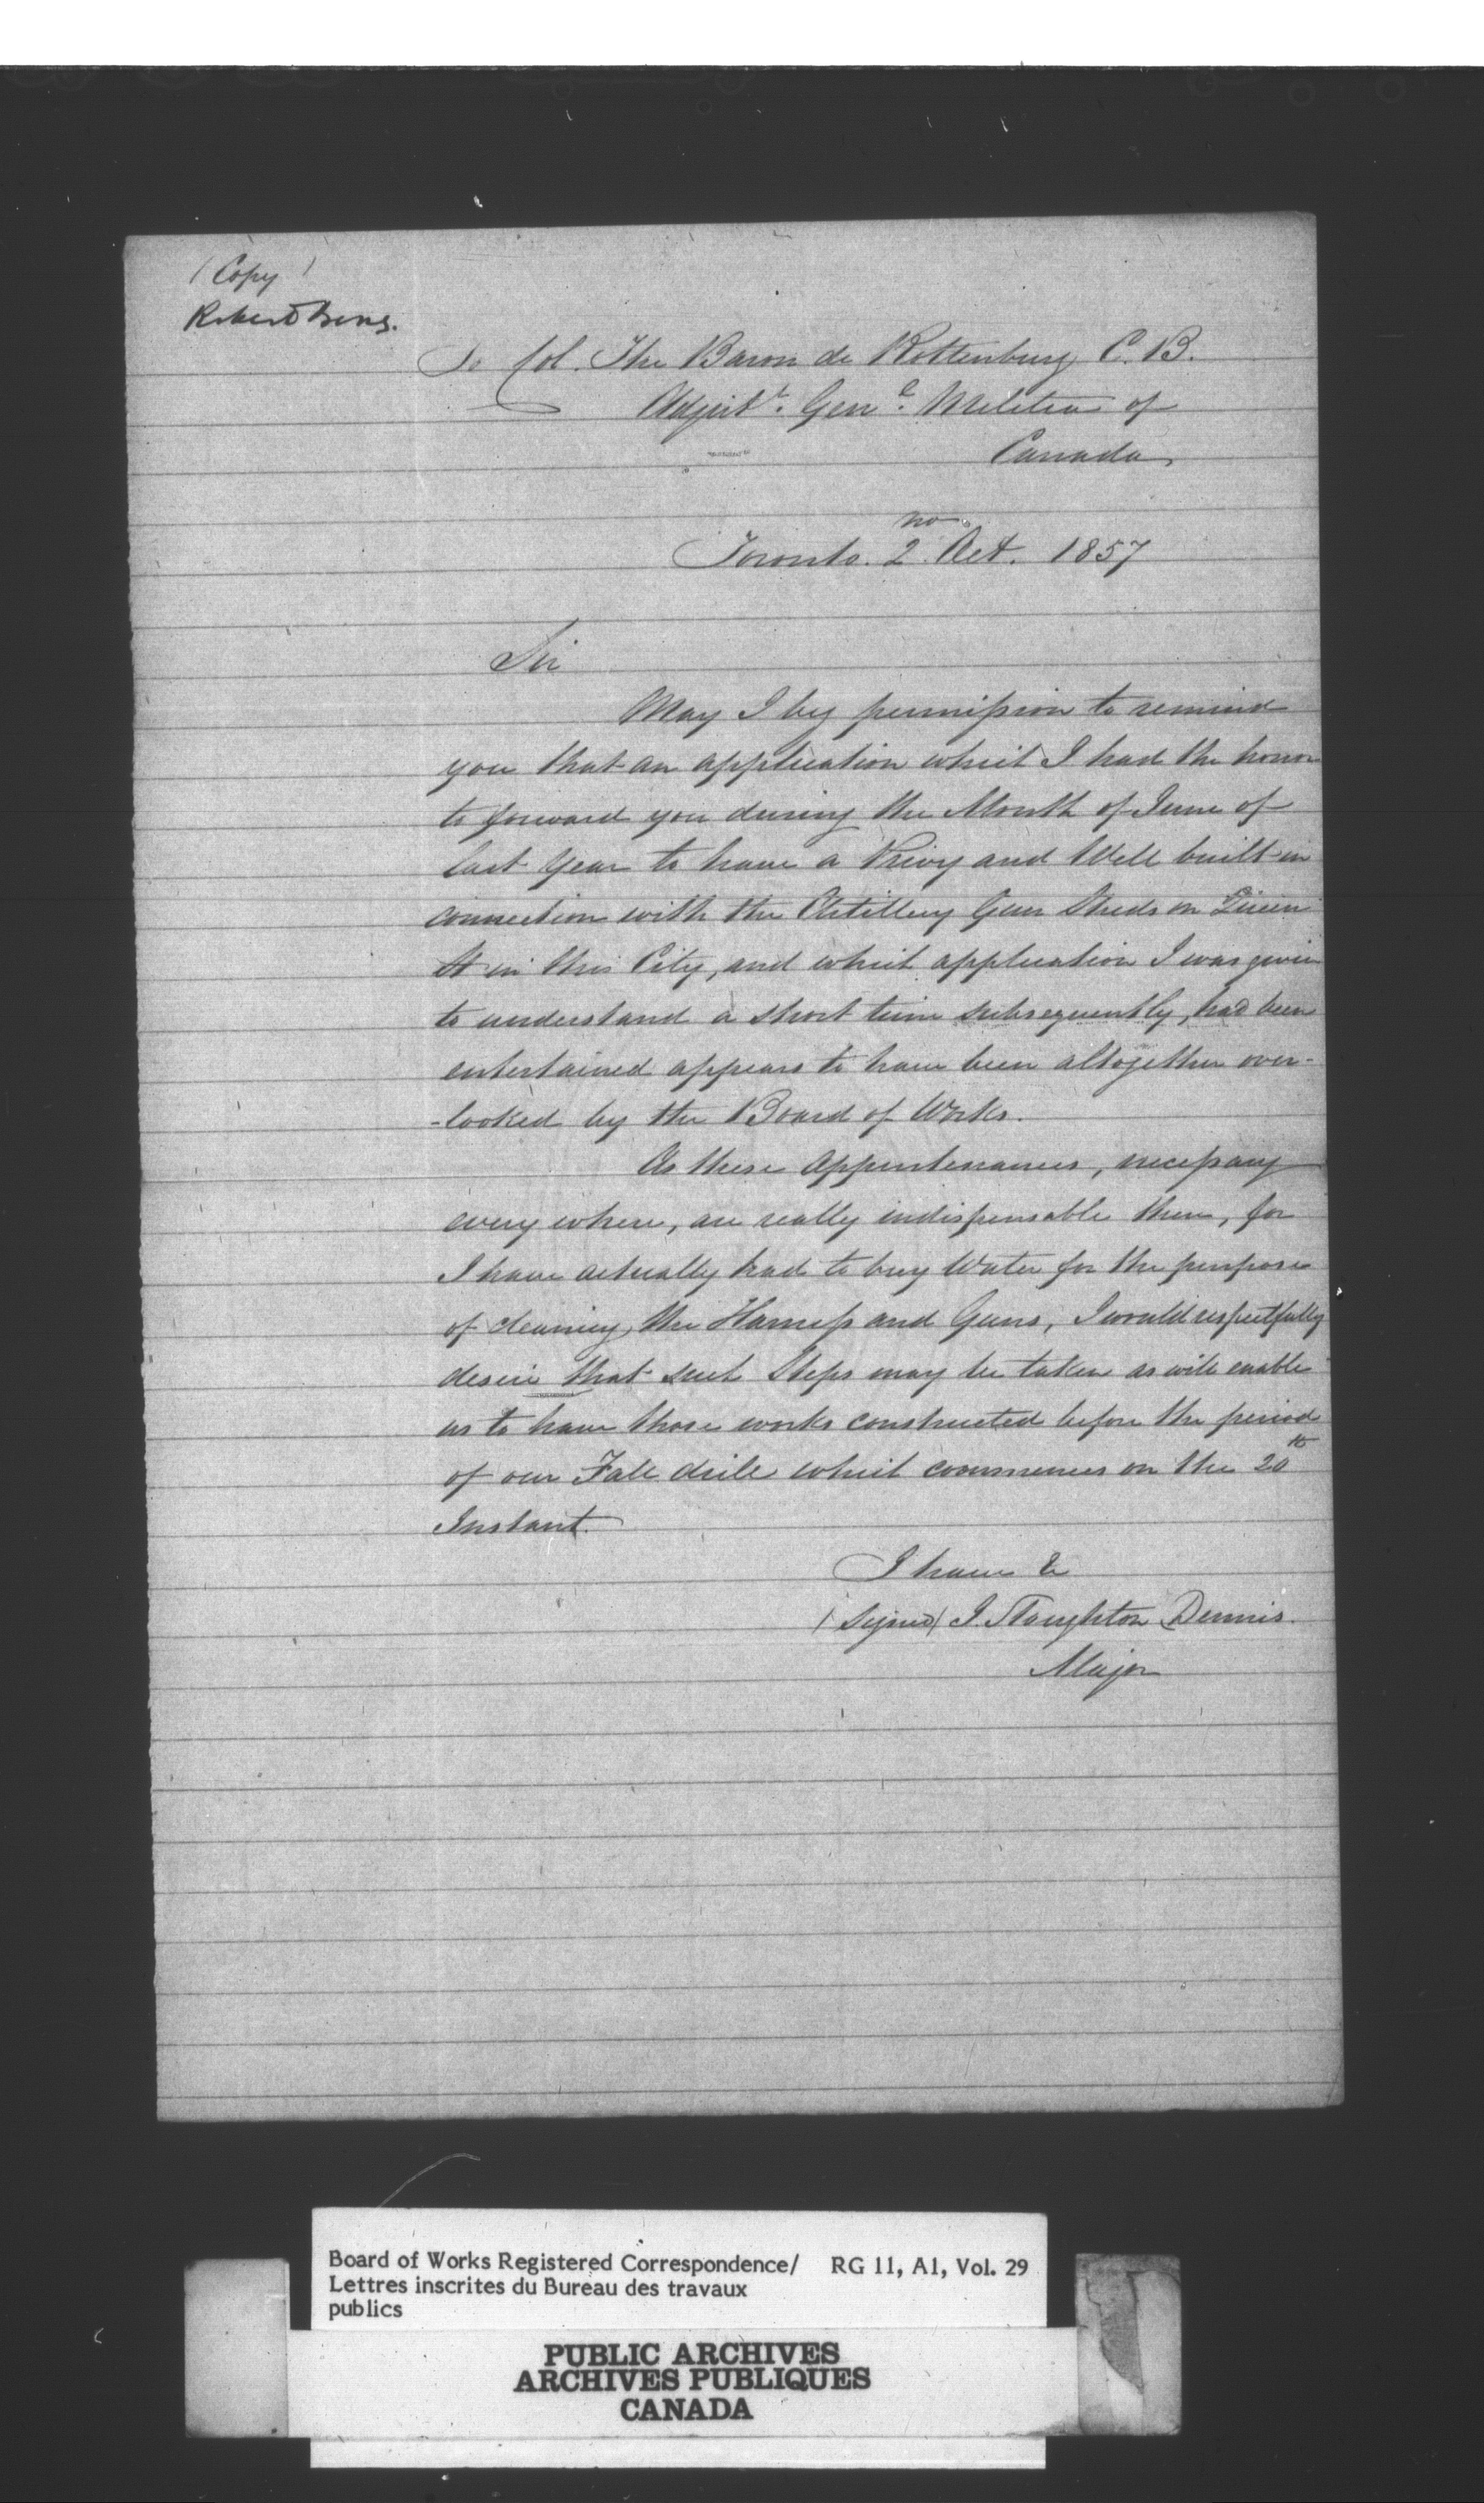 (Copy)
Robert
To Col. The Baron de Rottenburg C.B.
Adjut.t Gen.l Militia of
Canada
Toronto. 2no. Oct. 1857
Sir
May I beg permission to remind
you that an application which I had the honor
to forward you during the Month of June of
last Year to have a Privy and Well built in
connection with the Artillery Gun Sheds on Queen
St in this City, and which application I was given
to understand a short time subsequently, had been
entertained appears to have been altogether over-
-looked by the Board of Works.
As these Appurtenances, necessary
every where, are really indispensable there, for
I have actually had to buy Water for the purpose
of cleaning the Harness and Guns, I would respectfully
desire that such Steps may be taken as will enable
us to have those works constructed before the period
of our Fall drill which commences on the 20th
Instant.
I have &c
(Signed) J. Stoughton Dennis
Major
Board of Works Registered Correspondence/ RG 11, A1, Vol. 29
Lettres inscrites du Bureau des travaux
publics
PUBLIC ARCHIVES
ARCHIVES PUBLIQUES
CANADA